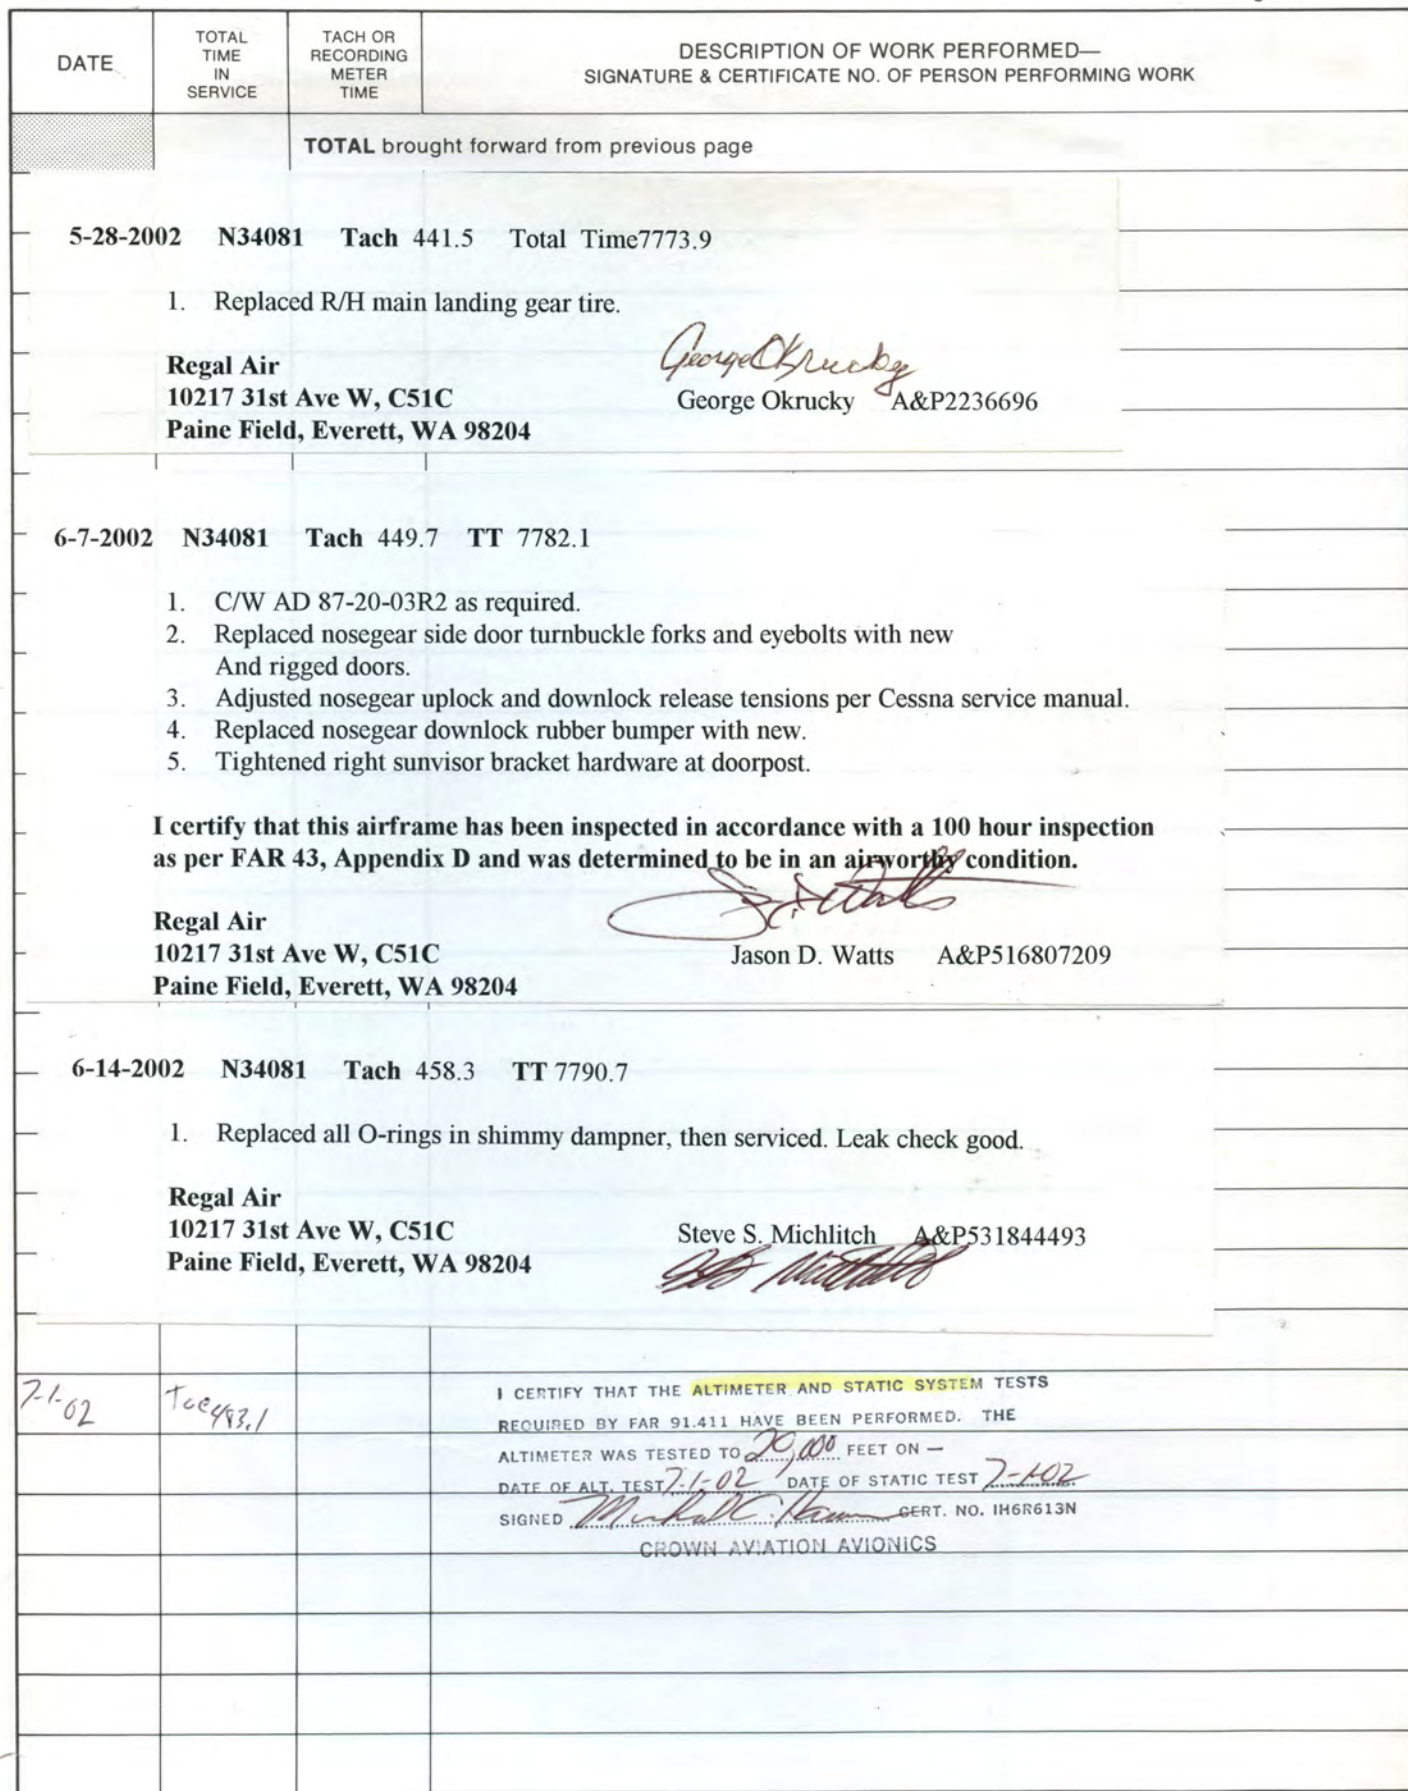 DATE
TOTAL
TIME
IN
SERVICE
TACH OR
RECORDING
METER
TIME
DESCRIPTION OF WORK PERFORMED—
SIGNATURE & CERTIFICATE NO. OF PERSON PERFORMING WORK
TOTAL brought forward from previous page
5-28-2002 N34081 Tach 441.5 Total Time7773.9
1. Replaced R/H main landing gear tire.
Regal Air
10217 31st Ave W, C51C
Paine Field, Everett, WA 98204
George Okrucky
George Okrucky A&P2236696
6-7-2002 N34081 Tach 449.7 TT 7782.1
1. C/W AD 87-20-03R2 as required.
2. Replaced nosegear side door turnbuckle forks and eyebolts with new
And rigged doors.
3. Adjusted nosegear uplock and downlock release tensions per Cessna service manual.
4. Replaced nosegear downlock rubber bumper with new.
5. Tightened right sunvisor bracket hardware at doorpost.
I certify that this airframe has been inspected in accordance with a 100 hour inspection
as per FAR 43, Appendix D and was determined to be in an airworthy condition.
Regal Air
10217 31st Ave W, C51C
Paine Field, Everett, WA 98204
Jason D. Watts A&P516807209
6-14-2002 N34081 Tach 458.3 TT 7790.7
1. Replaced all O-rings in shimmy dampner, then serviced. Leak check good.
Regal Air
10217 31st Ave W, C51C
Paine Field, Everett, WA 98204
Steve S. Michlitch A&P531844493
7-1-02
483.1
I CERTIFY THAT THE ALTIMETER AND STATIC SYSTEM TESTS
REQUIRED BY FAR 91.411 HAVE BEEN PERFORMED. THE
ALTIMETER WAS TESTED TO 20,000 FEET ON —
DATE OF ALT. TEST 7-1-02 DATE OF STATIC TEST 7-1-02
SIGNED CERT. NO. IH6R613N
CROWN AVIATION AVIONICS